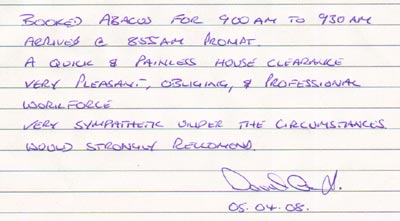 BOOKED ABACUS FOR 900AM TO 930AM
ARRIVED @ 855AM PROMPT.
A QUICK & PAINLESS HOUSE CLEARANCE
VERY PLEASANT, OBLIGING, & PROFESSIONAL
WORKFORCE
VERY SYMPATHETIC UNDER THE CIRCUMSTANCES.
WOULD STRONGLY RECCOMEND.
05.04.08.